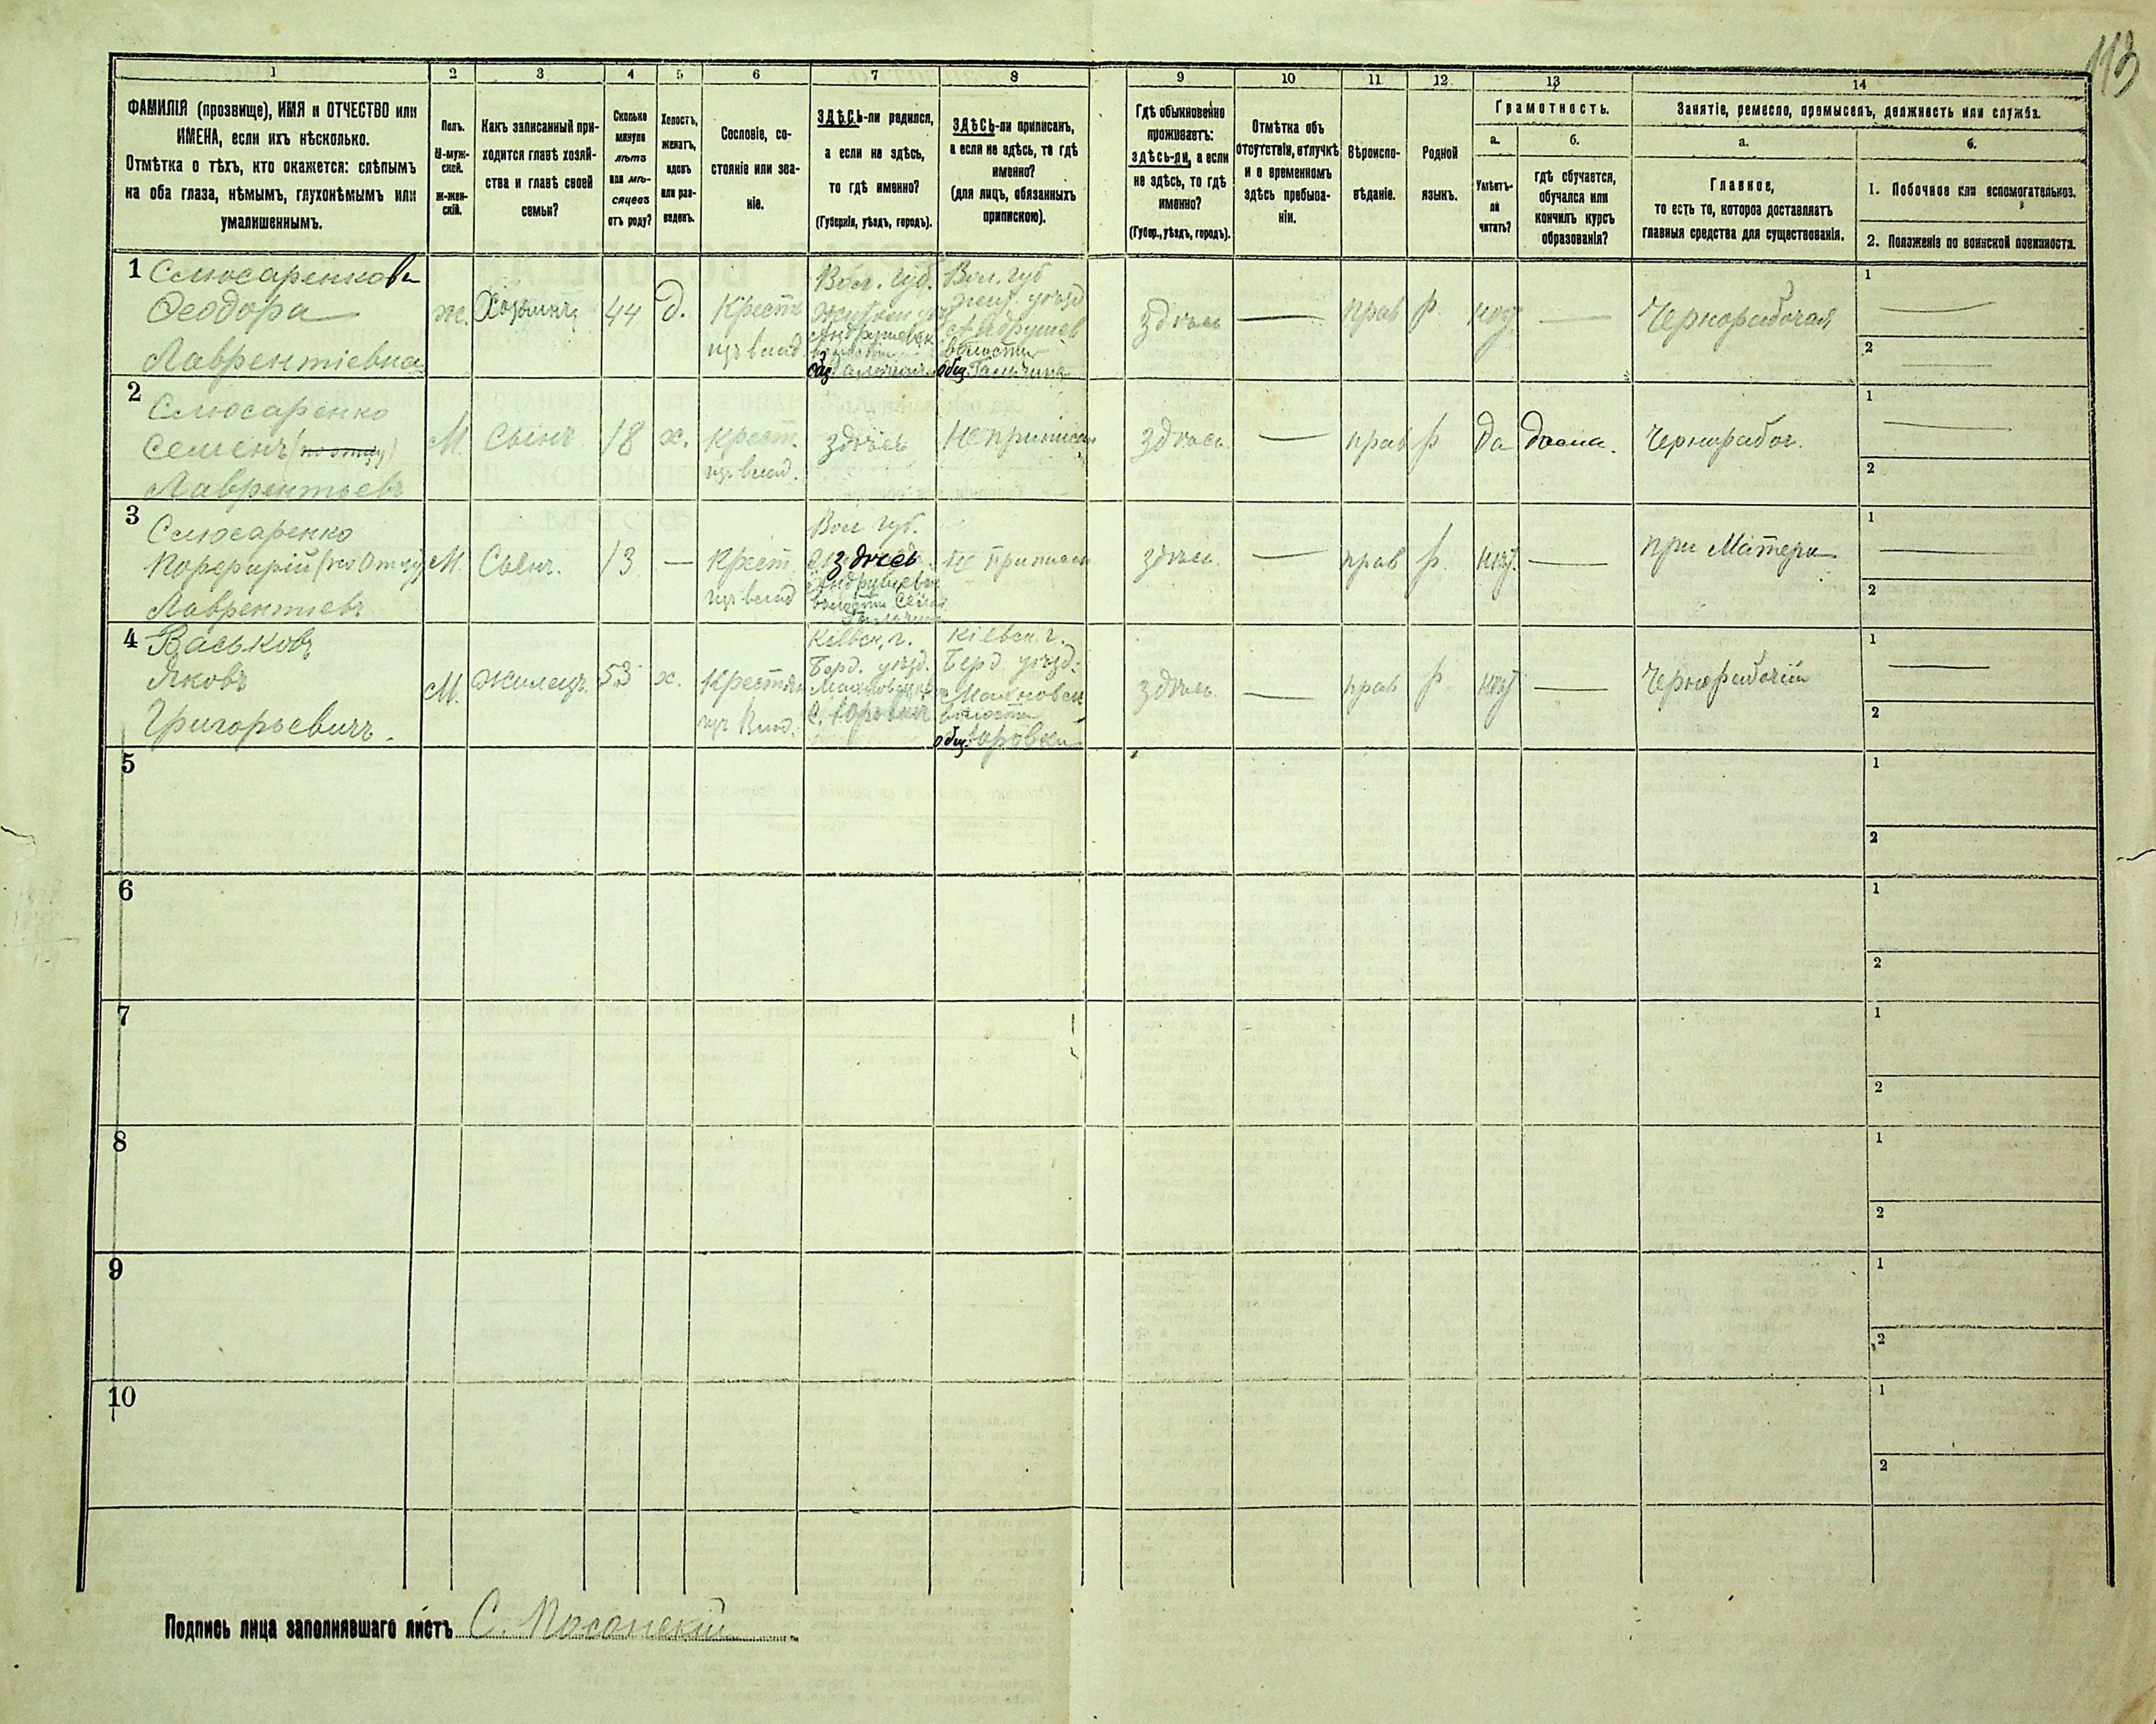 113
1 2 3 4 5 6 7 8 9 10 11 12 13 14
ФАМИЛІЯ (прозвище), ИМЯ и ОТЧЕСТВО или
ИМЕНА, если ихъ нѣсколько.
Отмѣтка о тѣхъ, кто окажется: слѣпымъ
на оба глаза, нѣмымъ, глухонѣмымъ или
умалишеннымъ.
Полъ.
М-муж-
ской.
ж-жен-
скій.
Какъ записанный при-
ходится главѣ хозяй-
ства и главѣ своей
семьи?
Сколько
минуло
лѣтъ
или мѣ-
сяцевъ
отъ роду?
Холостъ,
женатъ,
вдовъ
или раз-
веденъ.
Сословіе, со-
стояніе или зва-
ніе.
ЗДѢСЬ-ли родился,
а если не здѣсь,
то гдѣ именно?
(Губернія, уѣздъ, городъ).
ЗДѢСЬ-ли приписанъ,
а если не здѣсь, то гдѣ
именно?
(для лицъ, обязанныхъ
припискою).
Гдѣ обыкновенно
проживаетъ:
здѣсь-ли, а если
не здѣсь, то гдѣ
именно?
(Губер., уѣздъ, городъ).
Отмѣтка объ
отсутствіи, отлучкѣ
и о временномъ
здѣсь пребыва-
ніи.
Вѣроиспо-
вѣданіе.
Родной
языкъ.
Грамотность.
а.
Умѣетъ-
ли
читать?
б.
гдѣ обучается,
обучался или
кончилъ курсъ
образованія?
Занятіе, ремесло, промыселъ, должность или служба.
а.
Главное,
то есть то, которое доставляетъ
главныя средства для существованія.
б.
1. Побочное или вспомогательное.
2. Положеніе по воинской повинности.
1 Слюсаренкова
Ѳеодора
Лаврентіевна
ж.
Хозяинъ
44
д.
Крест
изъ влад.
Вол. губ.
Андрушевск
Вол. губ
Жит. уѣзд
Андрушев
волости
общ. Гальчина
здѣсь
—
прав
р.
нѣт
—
Чернорабочая
1 —
2 —
2 Слюсаренко
Семенъ (по отцу)
Лаврентьевъ
М.
Сынъ
18
х.
Крест.
изъ влад.
здѣсь
Не приписан
здѣсь
—
прав
р
да
дома.
Чернорабоч.
1 —
2
3 Слюсаренко
Порфирій (по Отцу)
Лаврентіевъ
М.
Сынъ.
13
—
Крест.
изъ влад
Вол губ.
здѣсь
Андрушевск
волости Село
не приписан
здѣсь.
—
прав
р.
нѣт.
—
при Матери
1 —
2
4 Васьковъ
Яковъ
Григорьевичъ.
М.
Жилецъ.
53
х.
Крестьян
изъ Влад.
Кіевск. г.
Берд. уѣзд.
Махновск
С. Юровки
Кіевск. г.
Берд. уѣзд.
Махновск
волости
общ. Юровки
здѣсь.
—
прав
р
нѣт
—
Чернорабочій
1 —
2
5
1
2
6
1
2
7
1
2
8
1
2
9
1
2
10
1
2
Подпись лица заполнявшаго листъ